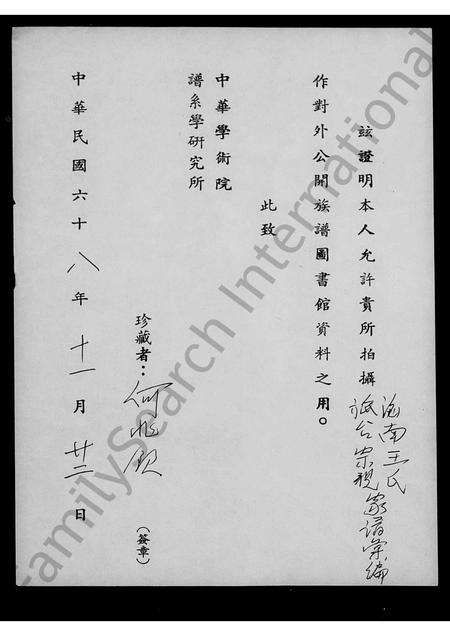 玆證明本人允許貴所拍攝
滄南王氏
作對外公開族譜圖書館資料之用。
此致
中華學術院
譜系學研究所
珍藏者：何兆欽
(簽章)
中華民國六十八年十一月廿二日
FamilySearch International